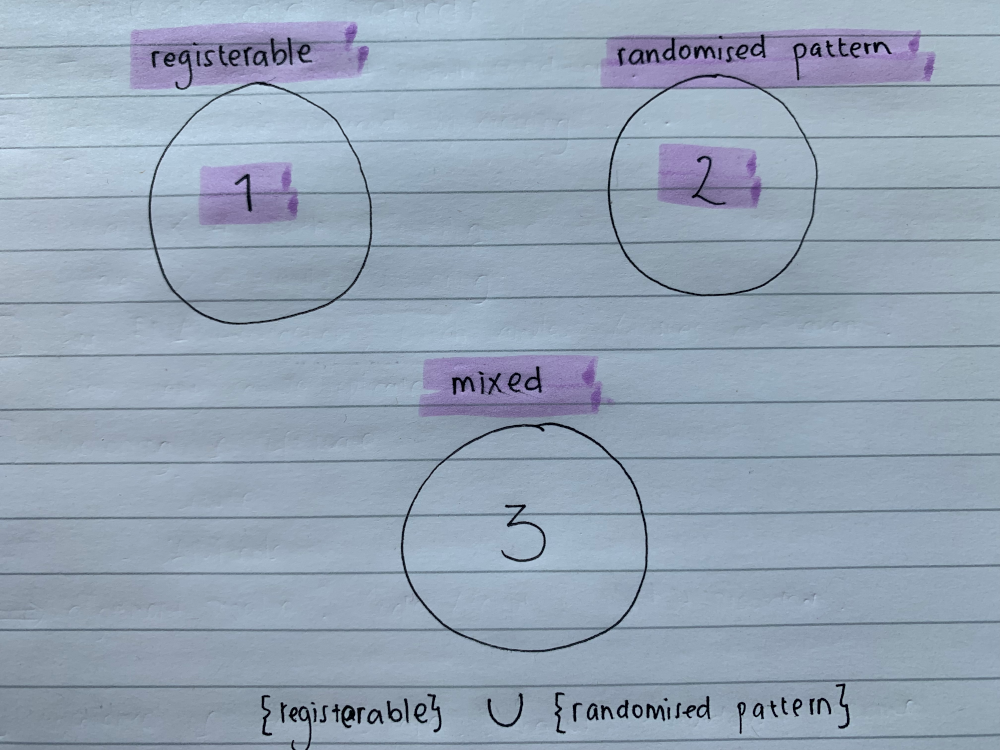 registerable
randomised pattern
1
2
mixed
3
{registerable} ∪ {randomised pattern}